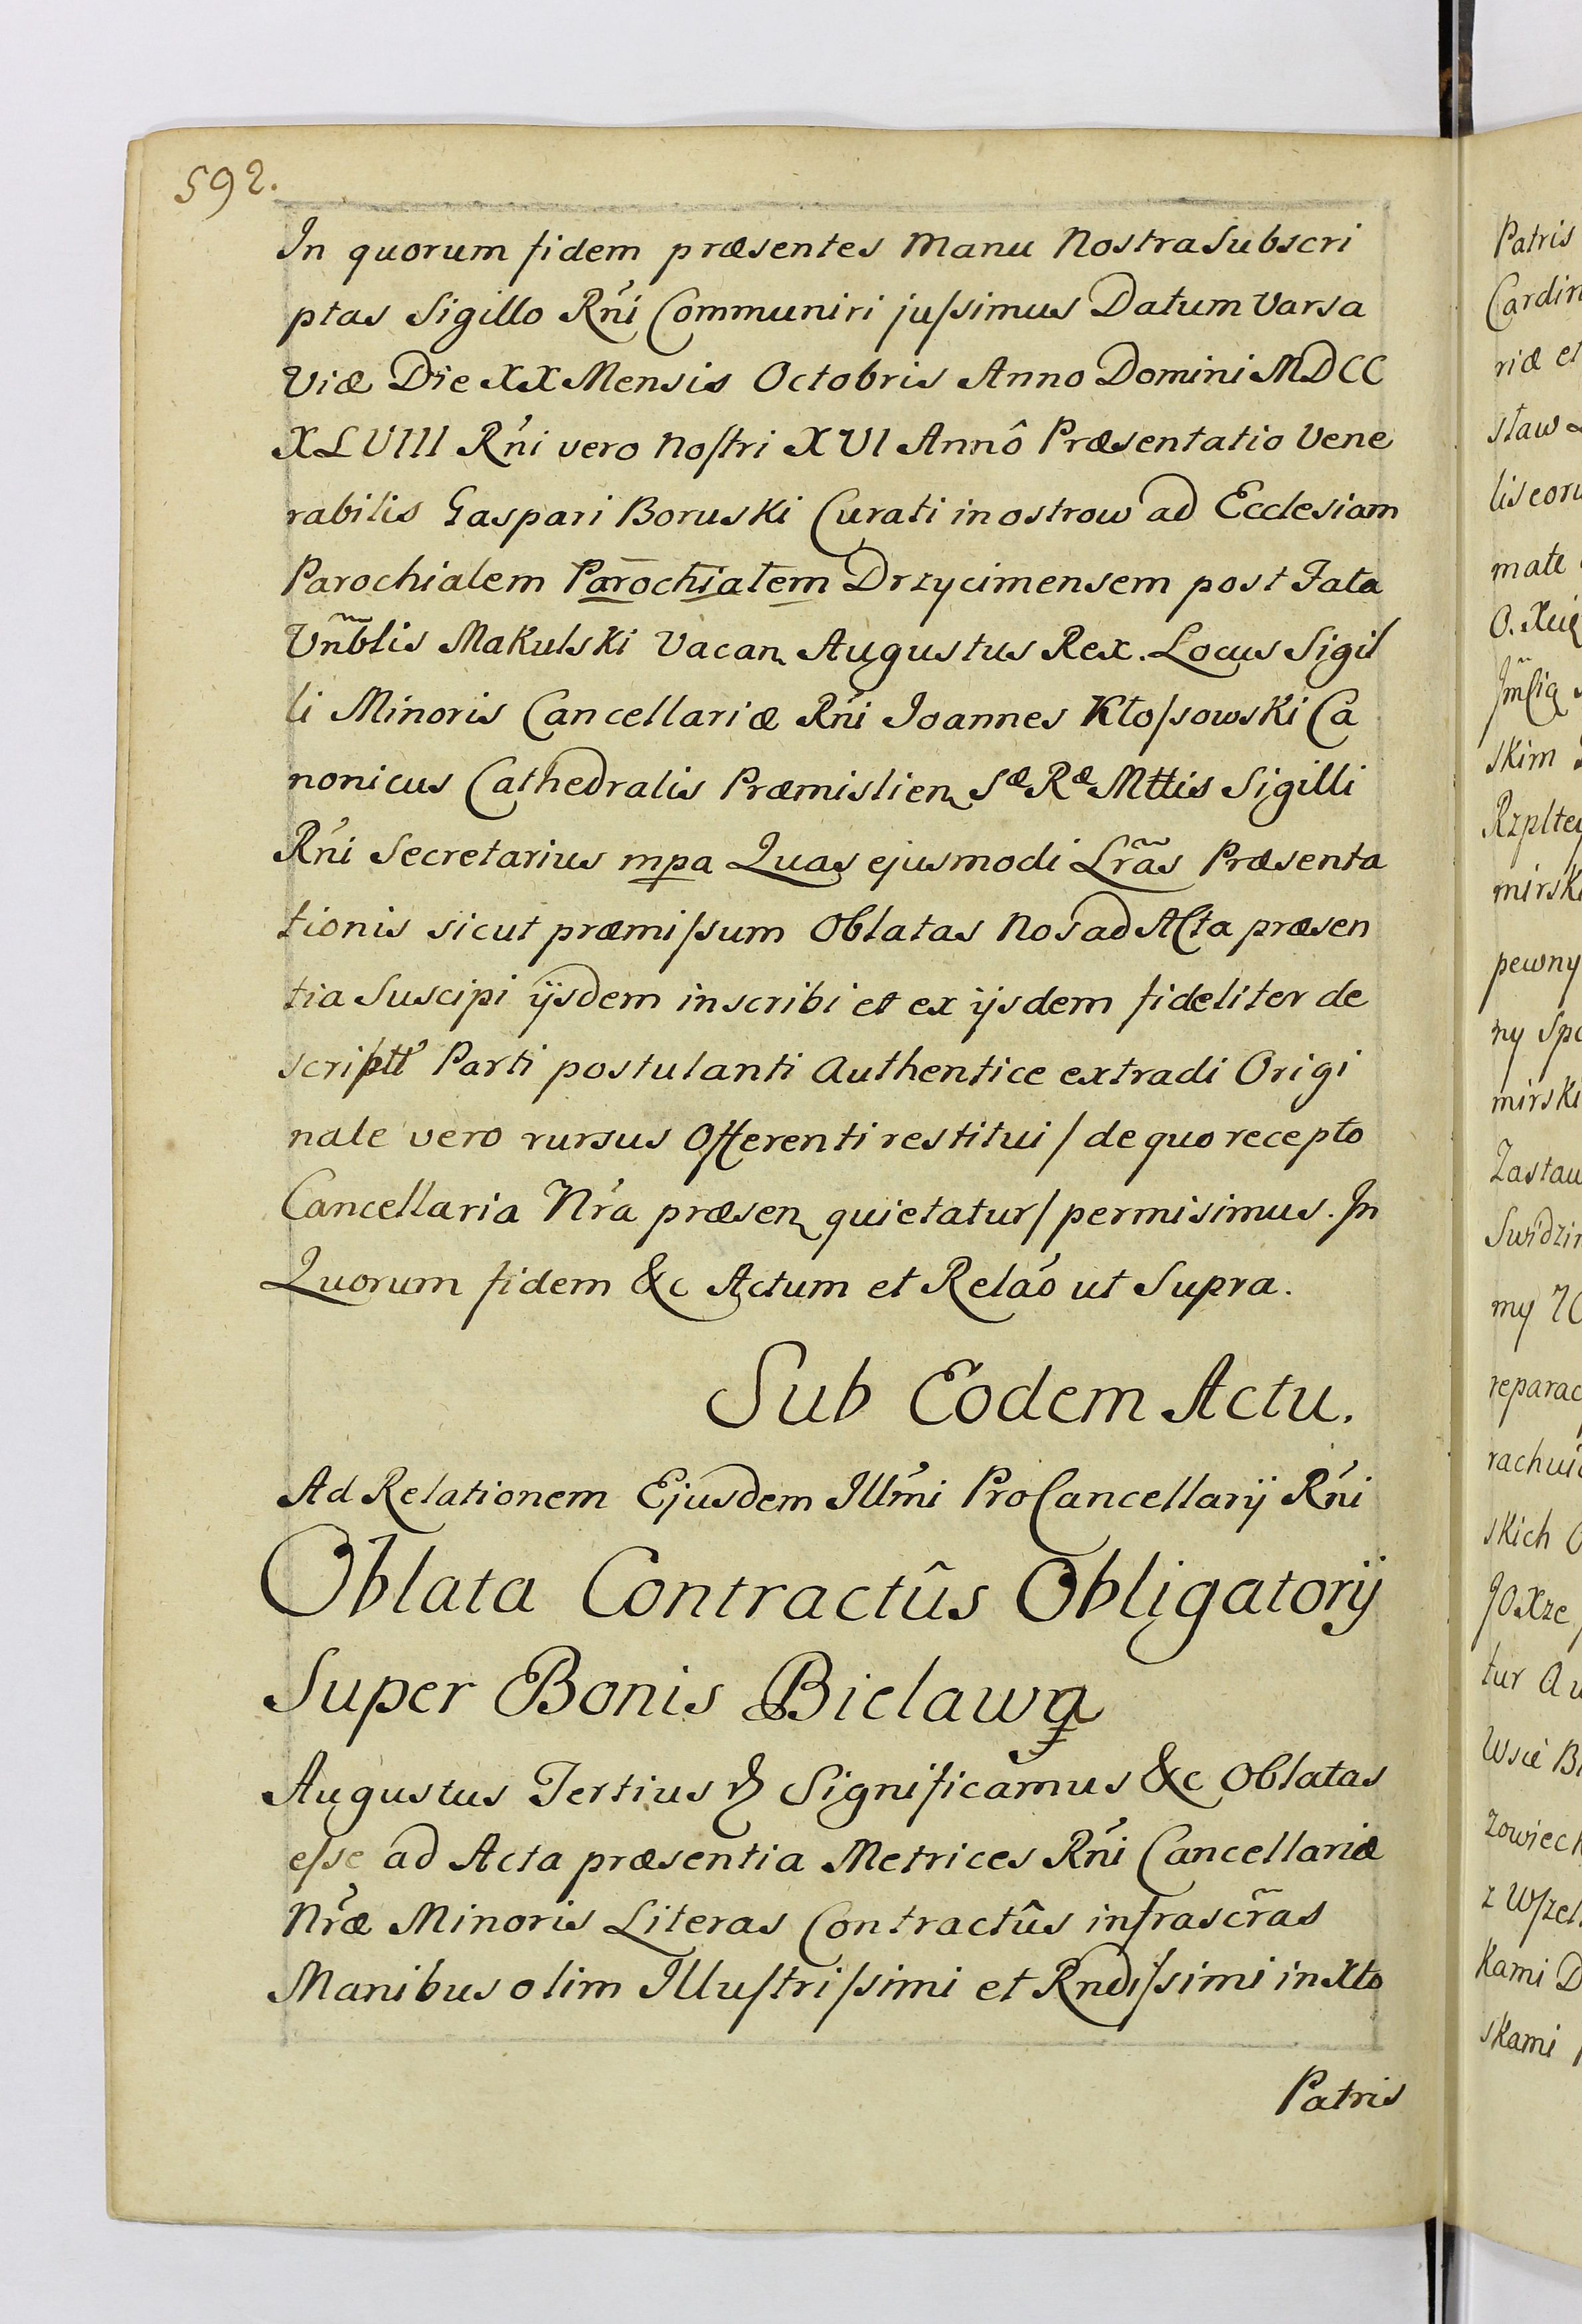 592.
In quorum fidem præsentes Manu Nostra Subscri
ptas Sigillo Rńi Communiri jussimus Datum Varsa
viæ Die XX Mensis Octobris Anno Domini MDCC
XLVIII Rńi vero nostri XVI Annô Præsentatio Vene
rabilis Gaspari Boruski Curati in ostrow ad Ecclesiam
Parochialem Parochialem Drzycimensem post Fata
Vñblis Makulski Vacan Augustus Rex. Locus Sigil
li Minoris Cancellariæ Rńi Joannes Kłossowski Ca
nonicus Cathedralis Præmislien Sæ Ræ Mttis Sigilli
Rńi Secretarius mpa Quas ejusmodi Lrãs Præsenta
tionis sicut præmissum Oblatas Nos ad Acta præsen
tia Suscipi ijsdem inscribi et ex ijsdem fideliter de
scriptt Parti postulanti Authentice extradi Origi
nale vero rursus Offerenti restitui / de quo recepto
Cancellaria Nŕa præsen quietatur / permisimus. In
Quorum fidem &c Actum et Relaó ut Supra.
Sub Eodem Actu.
Ad Relationem Ejusdem Illḿi ProCancellarij Rńi
Oblata Contractûs Obligatorij
Super Bonis Bielawą
Augustus Tertius Significamus &c Oblatas
esse ad Acta præsentia Metrices Rńi Cancellariæ
Nŕæ Minoris Literas Contractûs infrascr̃as
Manibus olim Illustrissimi et Rndissimi in Xto
Patris
Patris
Cardin
riæ et
staw
lis eoru
mate
O. Xcią
skim
Rzpltey
mirsk
pewny
ny Spo
mirski
Zastaw
Swidzin
my
reparac
rachui
skich
JOXze
tur Au
Wsie B
zowieck
z Wszel
kami D
skami